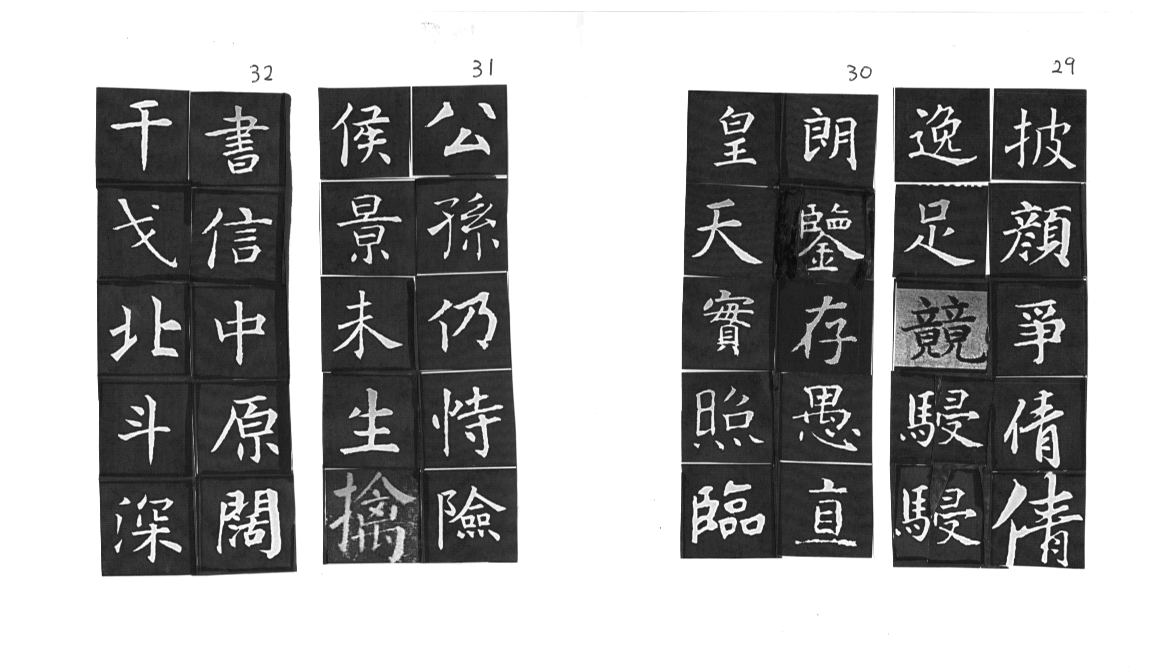 29
披顏爭倩倩
逸足競駸駸
30
朗鑒存愚直
皇天實照臨
31
公孫仍恃險
侯景未生擒
32
書信中原闊
干戈北斗深